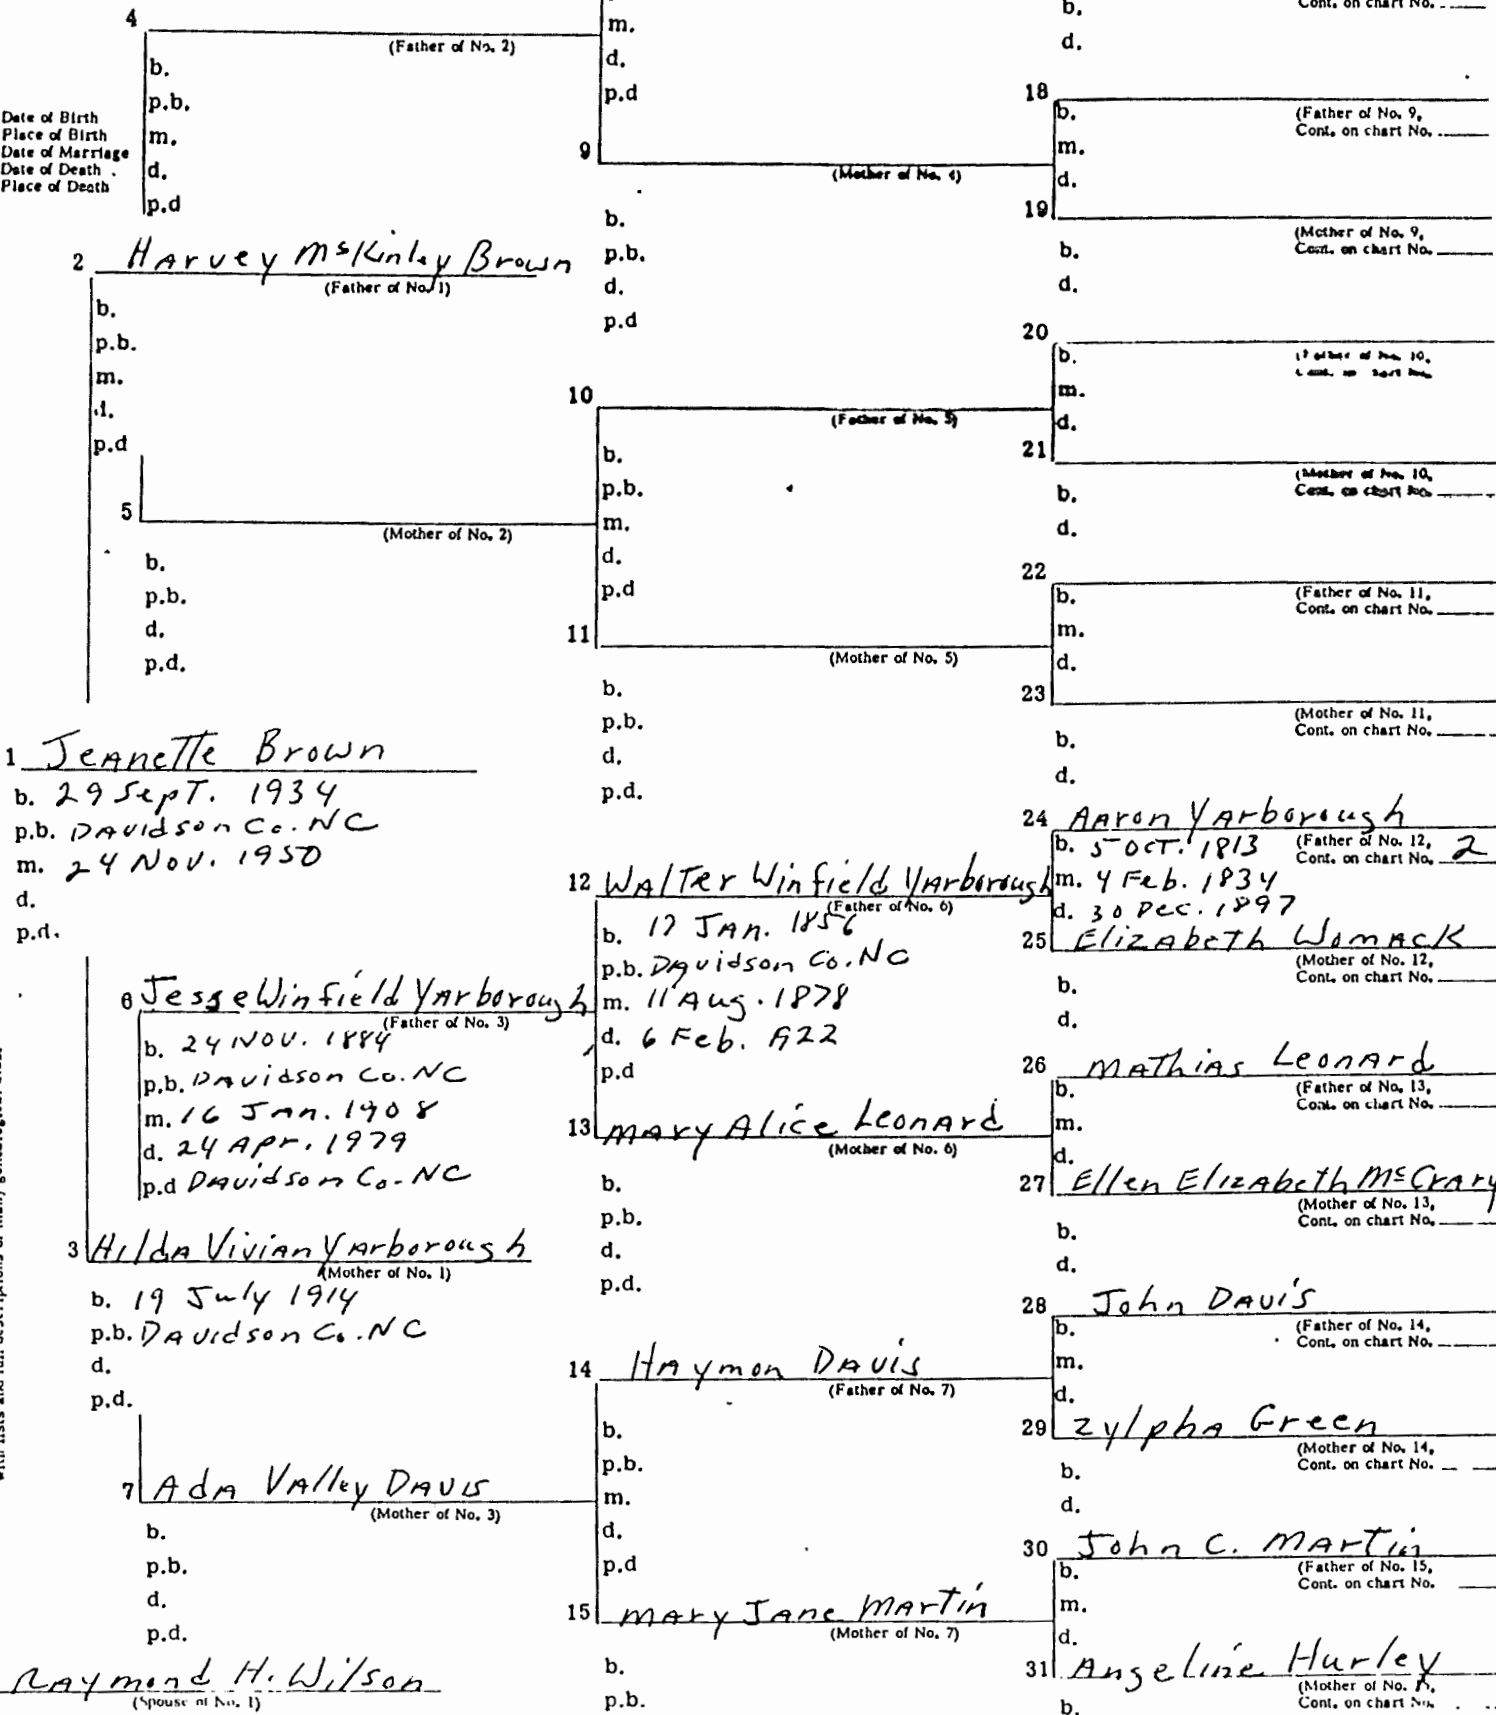 4
(Father of No. 2)
b.
p.b.
m.
d.
p.d
Date of Birth
Place of Birth
Date of Marriage
Date of Death
Place of Death
2 Harvey McKinley Brown
(Father of No. 1)
b.
p.b.
m.
d.
p.d
5
(Mother of No. 2)
b.
p.b.
d.
p.d.
1 Jeanette Brown
b. 29 Sept. 1934
p.b. Davidson Co. NC
m. 24 Nov. 1950
d.
p.d.
6 Jesse Winfield Yarborough
(Father of No. 3)
b. 24 Nov. 1884
p.b. Davidson Co. NC
m. 16 Jan. 1908
d. 24 Apr. 1979
p.d Davidson Co. NC
3 Hilda Vivian Yarborough
(Mother of No. 1)
b. 19 July 1914
p.b. Davidson Co. NC
d.
p.d.
7 Ada Valley Davis
(Mother of No. 3)
b.
p.b.
d.
p.d.
Raymond H. Wilson
(Spouse of No. 1)
m.
d.
p.d
9
(Mother of No. 4)
b.
p.b.
d.
p.d
10
(Father of No. 5)
b.
p.b.
m.
d.
p.d
11
(Mother of No. 5)
b.
p.b.
d.
p.d.
12 Walter Winfield Yarborough
(Father of No. 6)
b. 17 Jan. 1856
p.b. Davidson Co. NC
m. 11 Aug. 1878
d. 6 Feb. 1922
p.d
13 Mary Alice Leonard
(Mother of No. 6)
b.
p.b.
d.
p.d.
14 Haymon Davis
(Father of No. 7)
b.
p.b.
m.
d.
p.d
15 Mary Jane Martin
(Mother of No. 7)
b.
p.b.
b.
Cont. on chart No.
d.
18
b. (Father of No. 9,
Cont. on chart No.
m.
d.
19
(Mother of No. 9,
b. Cont. on chart No.
d.
20
b. (Father of No. 10,
Cont. on chart No.
m.
d.
21
(Mother of No. 10,
b. Cont. on chart No.
d.
22
b. (Father of No. 11,
Cont. on chart No.
m.
d.
23
(Mother of No. 11,
b. Cont. on chart No.
d.
24 Aaron Yarborough
b. 5 Oct. 1813 (Father of No. 12,
Cont. on chart No. 2
m. 4 Feb. 1834
d. 30 Dec. 1897
25 Elizabeth Womack
(Mother of No. 12,
b. Cont. on chart No.
d.
26 Mathias Leonard
b. (Father of No. 13,
Cont. on chart No.
m.
d.
27 Ellen Elizabeth McCrary
(Mother of No. 13,
b. Cont. on chart No.
d.
28 John Davis
b. (Father of No. 14,
Cont. on chart No.
m.
d.
29 Zylpha Green
(Mother of No. 14,
b. Cont. on chart No.
d.
30 John C. Martin
b. (Father of No. 15,
Cont. on chart No.
m.
d.
31 Angeline Hurley
(Mother of No. 15,
b. Cont. on chart No.